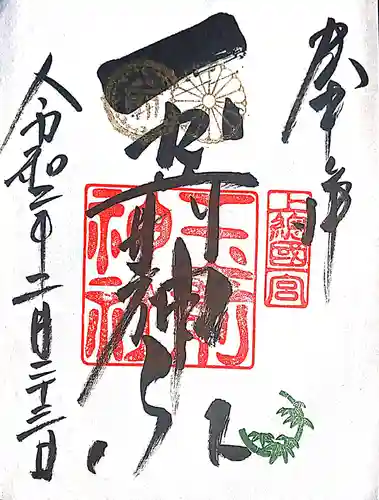 奉拝
上総國一宮
玉前神社
玉前神社
令和二年二月二十三日